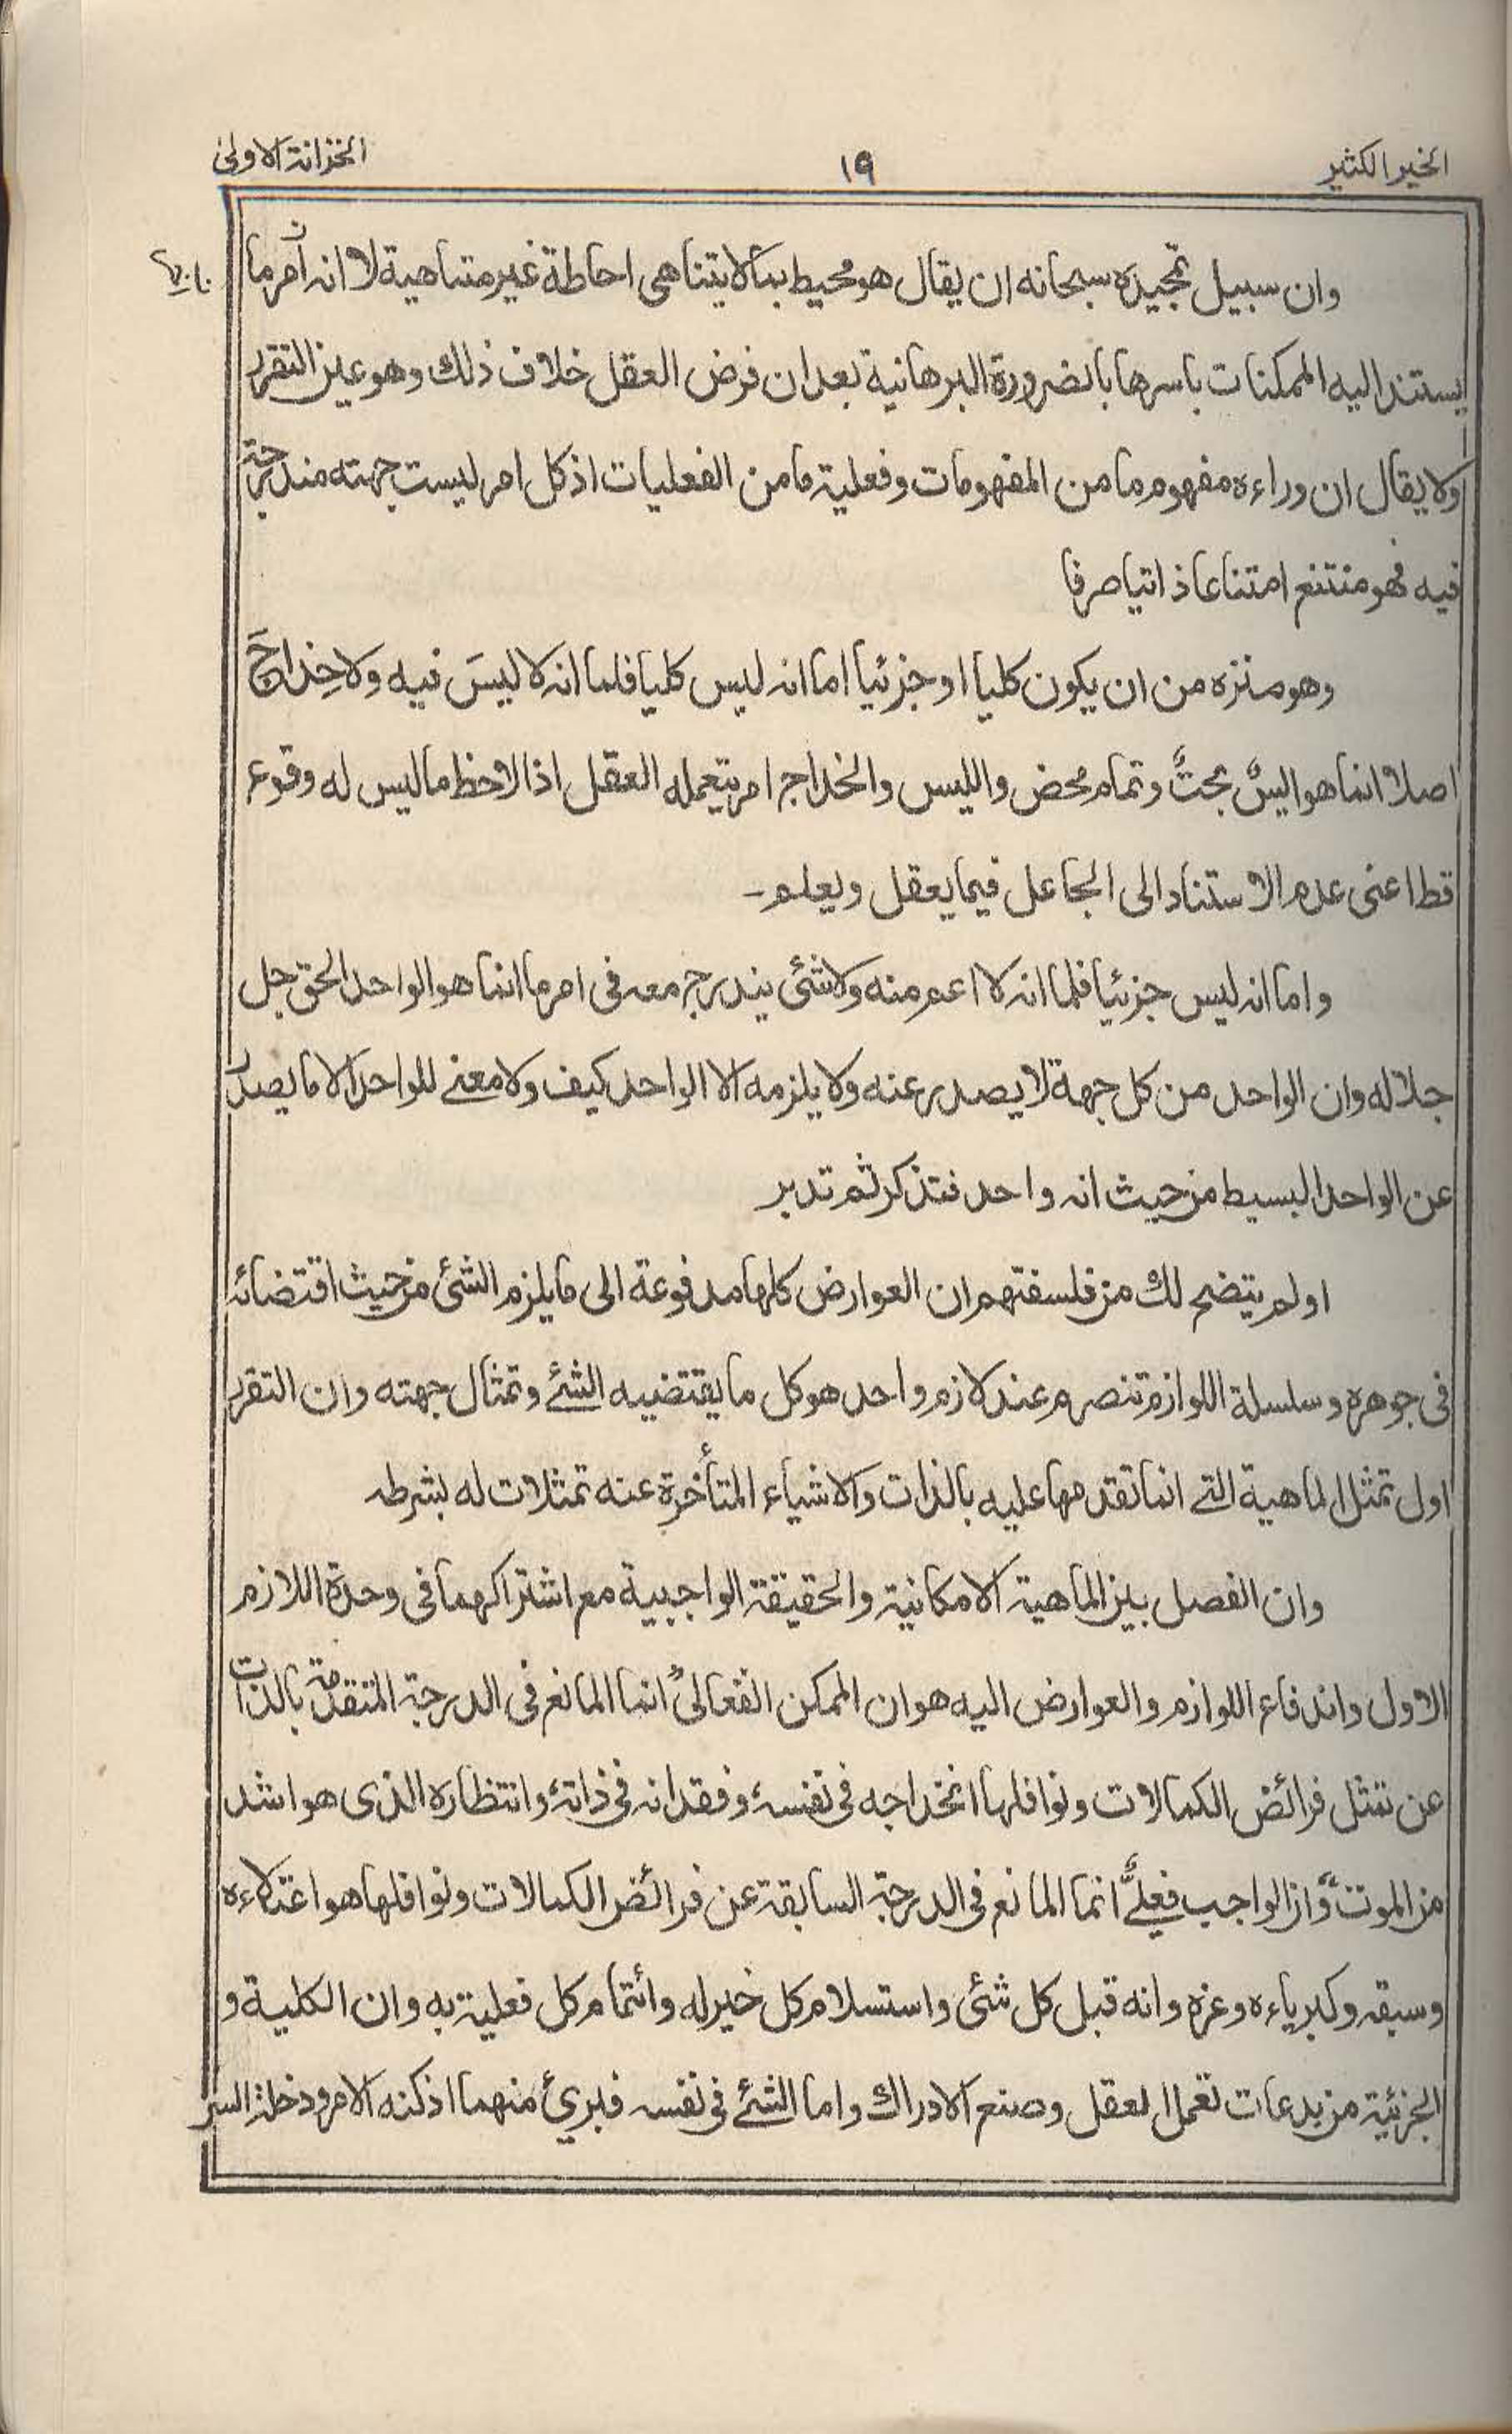 الخير الكثير ١٩ الخزانة الاولى
وان سبيل تمجيده سبحانه ان يقال هو محيط بما لا يتناهى احاطة غير متناهية لا انه امر ما
يستند اليه الممكنات باسرها بالضرورة البرهانية بعد ان فرض العقل خلاف ذلك وهو عين التقرر
ولا يقال ان وراءه مفهوم ما من المفهومات وفعلية ما من الفعليات اذ كل امر ليست جهته مندرجة
فيه فهو منتنع امتناعا ذاتيا صرفا
وهو منزه من ان يكون كليا او جزئيا اما انه ليس كليا فلما انه لا ليسَ فيه ولا خِداجَ
اصلا انما هو اليسٌ بحتٌ وتمام محض والليس والخداج امر يتعمله العقل اذا لاحظ ما ليس له وقوع
قط اعنى عدم الاستناد الى الجاعل فيما يعقل ويعلم۔
واما انه ليس جزئيا فلما انه لا اعم منه ولا شئ يندرج معه فى امر ما انما هو الواحد الحق جل
جلاله وان الواحد من كل جهة لا يصدر عنه ولا يلزمه الا الواحد كيف ولا معنى للواحد الا ما يصدر
عن الواحد البسيط من حيث انه واحد فتذكر ثم تدبر
اولم يتضح لك من فلسفتهم ان العوارض كلها مدفوعة الى ما يلزم الشئ من حيث اقتضائه
فى جوهره وسلسلة اللوازم تنصرم عند لازم واحد هو كل ما يقتضيه الشئ وتمثال جهته وان التقرر
اول تمثل الماهية التى انما تقدمها عليه بالذات والاشياء المتأخرة عنه تمثلات له بشرطه
وان الفصل بين الماهية الامكانية والحقيقة الواجبية مع اشتراكهما فى وحدة اللازم
الاول واندفاع اللوازم والعوارض اليه هو ان الممكن الفعالىٌ انما المانع فى الدرجة المتقدمة بالذات
عن تمثل فرائض الكمالات ونوافلها انخداجه فى نفسه، وفقدانه فى ذاته، وانتظاره الذى هو اشد
من الموت وان الواجب فعلىٌّ انما المانع فى الدرجة السابقة عن فرائض الكمالات ونوافلها هو اعتلاءه
وسبقه وكبرياءه وعزه وانه قبل كل شئ واستسلام كل خير له وائتمام كل فعلية به وان الكلية و
الجزئية من بدعات تعمل العقل وصنع الادراك واما الشئ فى نفسه فبرئ منهما اذ كنه الامر ودخلة السر